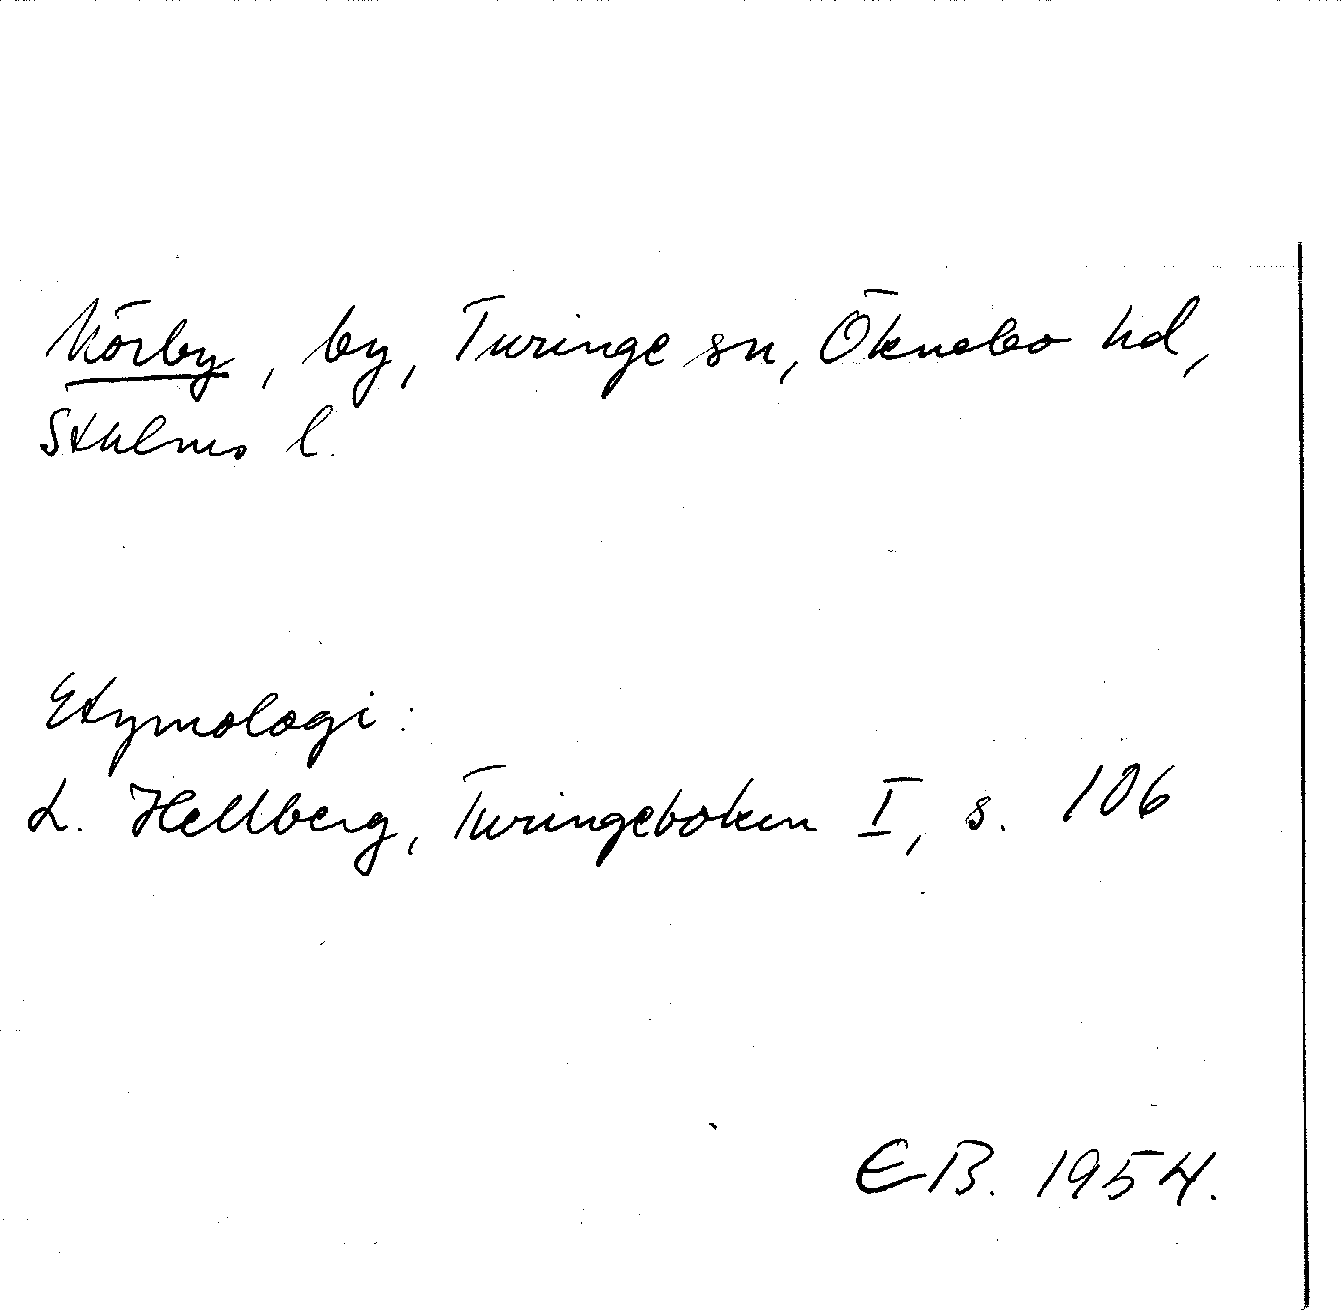 Mörby, by, Turinge sn, Öknebo hd,
Sthlms l.
Etymologi:
L. Hellberg, Turingeboken I, s. 106
EB. 1954.